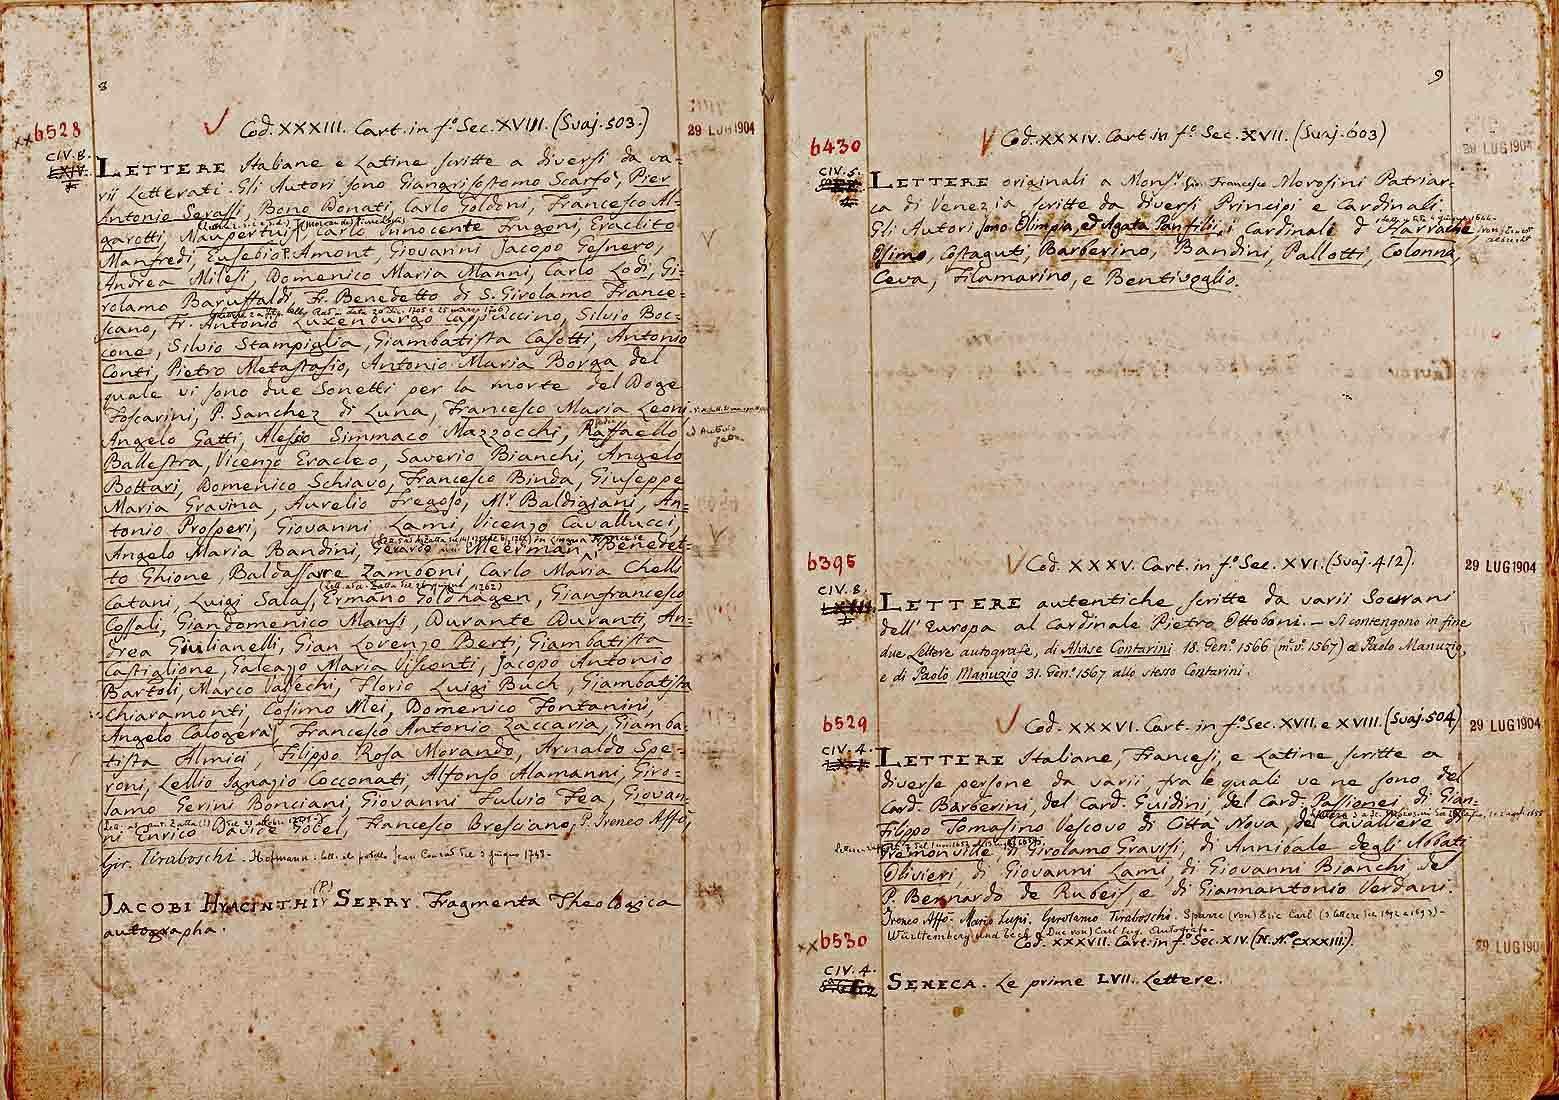 8
6528
√ Cod. XXXIII. Cart. in f.º Sec. XVIII. (Svaj. 503.)
29 LUG 1904
CIV. 8.
LETTERE Italiane e Latine scritte a diversi da va-
rii Letterati. Gli Autori sono Giangrisostomo Scarfò, Pier
Antonio Serassi, Bono Donati, Carlo Goldoni, Francesco Al-
garotti, Maupertuis, Carlo Innocente Frugoni, Eraclito
Manfredi, Eusebio Amont, Giovanni Jacopo Gesnero,
Andrea Milesi, Domenico Maria Manni, Carlo Lodi, Gi-
rolamo Baruffaldi, Fr. Benedetto di S. Girolamo France-
scano, Fr. Antonio Luxenburgo Cappuccino, Silvio Boc-
cone, Silvio Stampiglia, Giambatista Casotti, Antonio
Conti, Pietro Metastasio, Antonio Maria Borga del
quale vi sono due Sonetti per la morte del Doge
Foscarini, P. Sanchez di Luna, Francesco Maria Leoni
Angelo Gatti, Alessio Simmaco Mazzocchi, Raffaello
Ballestra, Vicenzo Eracleo, Saverio Bianchi, Angelo
Bottari, Domenico Schiavo, Francesco Binda, Giuseppe
Maria Gravina, Aurelio Fregoso, M.r Baldigiani, An-
tonio Prosperi, Giovanni Lami, Vicenzo Cavallucci,
Angelo Maria Bandini, Gerardo Meerman, Benedet-
to Ghione, Baldassarre Zamboni Carlo Maria Chelli
Catani, Luigi Salas, Ermano Goldhagen, Gianfrancesco
Cossali, Giandomenico Mansi, Durante Duranti, An-
drea Giulianelli, Gian Lorenzo Berti, Giambatista
Castiglione, Galeazzo Maria Visconti, Jacopo Antonio
Bartoli, Marco Valsechi, Florio Luigi Buch, Giambatista
Chiaramonti, Cosimo Mei, Domenico Fontanini,
Angelo Calogerà, Francesco Antonio Zaccaria, Giamba-
tista Almici, Filippo Rosa Morando, Arnaldo Spe-
roni, Lellio Ignazio Cocconati, Alfonso Alamanni, Giro-
lamo Gerini Bonciani, Giovanni Fulvio Fea, Giovan-
ni Enrico Davide Gobel, Francesco Bresciano, P. Ireneo Affò,
Gir. Tiraboschi - Hofmann
JACOBI HYACINTHI (P.) SERRY. Fragmenta Theologica
autographa.
9
6430
√ Cod. XXXIV. Cart. in f.º Sec. XVII. (Svaj. 603)
29 LUG 1904
CIV. 5.
LETTERE originali a Mons.r Gio. Francesco Morosini Patriar-
ca di Venezia scritte da diversi Principi e Cardinali
Gli Autori sono Olimpia, ed Agata Panfili, i Cardinali d'Harrache,
Osimo, Costaguti, Barberino, Bandini, Pallotti, Colonna,
Ceva, Filamarino, e Bentivoglio.
6395
√ Cod. XXXV. Cart. in f.º Sec. XVI. (Svaj. 412).
29 LUG 1904
CIV. 8.
LETTERE autentiche scritte da varii Sovrani
dell'Europa al Cardinale Pietro Ottoboni. - Si contengono in fine
due Lettere autografe, di Alvise Contarini 18. Gen.º 1566 (m.v. 1567) a Paolo Manuzio,
e di Paolo Manuzio 31. Gen.º 1567 allo stesso Contarini.
6529
√ Cod. XXXVI. Cart. in f.º Sec. XVII. e XVIII. (Svaj. 504)
29 LUG 1904
CIV. 4.
LETTERE Italiane, Francesi, e Latine scritte a
diverse persone da varii fra le quali ve ne sono del
Card. Barberini, del Card. Guidini, del Card. Passionei di Gian-
Filippo Tomasino Vescovo di Città Nova, del Cavaliere di
Fremonville, di Girolamo Gravisi, di Annibale degli Abbati
Olivieri, di Giovanni Lami, di Giovanni Bianchi, del
P. Bernardo de Rubeis, e di Giannantonio Verdani.
Ireneo Affò - Mario Lupi. Girolamo Tiraboschi. Sparre (von) Eric Carl (3 lettere del 1692 e 1693) -
6530
Cod. XXXVII. Cart. in f.º Sec. XIV. (N. N.º CXXXIII.)
29 LUG 1904
CIV. 4.
SENECA. Le prime LVII. Lettere.